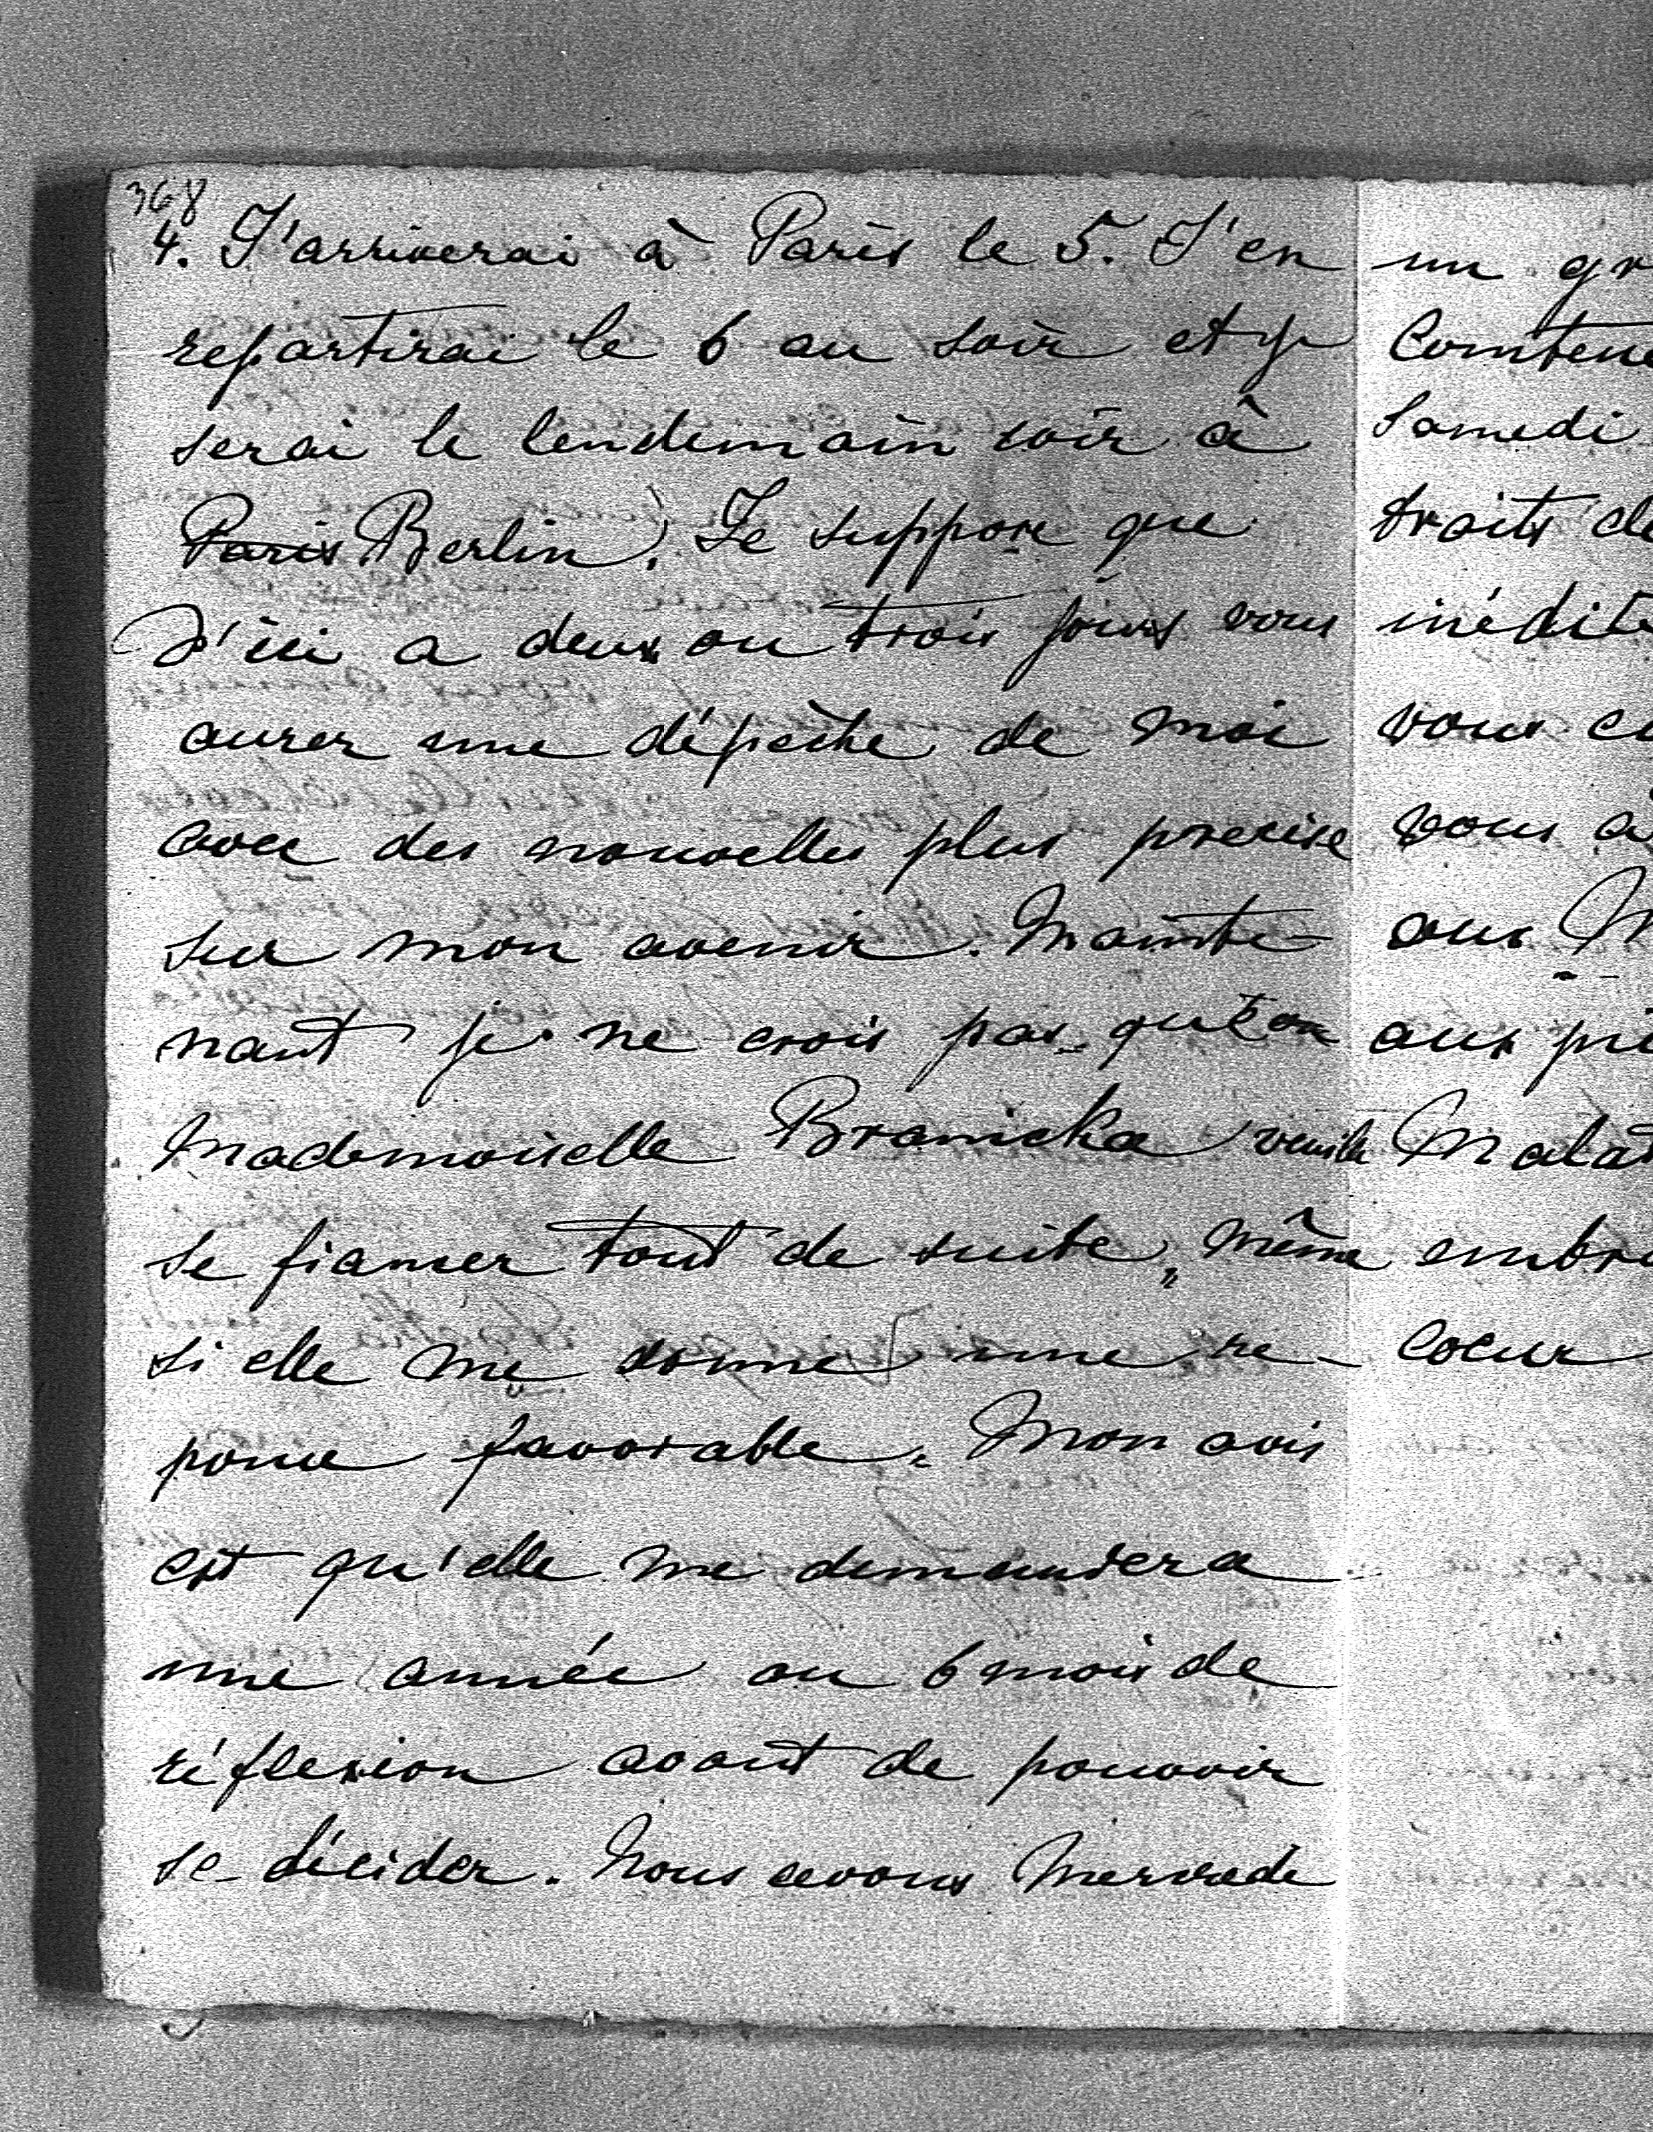 368
4. J'arriverai à Paris le 5. J'en
repartirai le 6 au soir et y
serai le lendemain soir à
Paris Berlin. Je suppose que
d'ici a deux ou trois jours vous
aurez une dépèche de moi
avec des nouvelles plus precise
sur mon avenir. Mainte-
nant je ne crois pas que
Mademoiselle Branicka veuille
se fiancer tout de suite, même
si elle me donne une re-
ponse favorable. Mon avis
est qu'elle me demandera
une année ou 6 mois de
réflexion avant de pouvoir
se décider. Nous avons Mercredi
un gr
Comtene
Samedi
traits de
inédite
vous
vous a
aux M
aux pi
Malat
embra
coeur